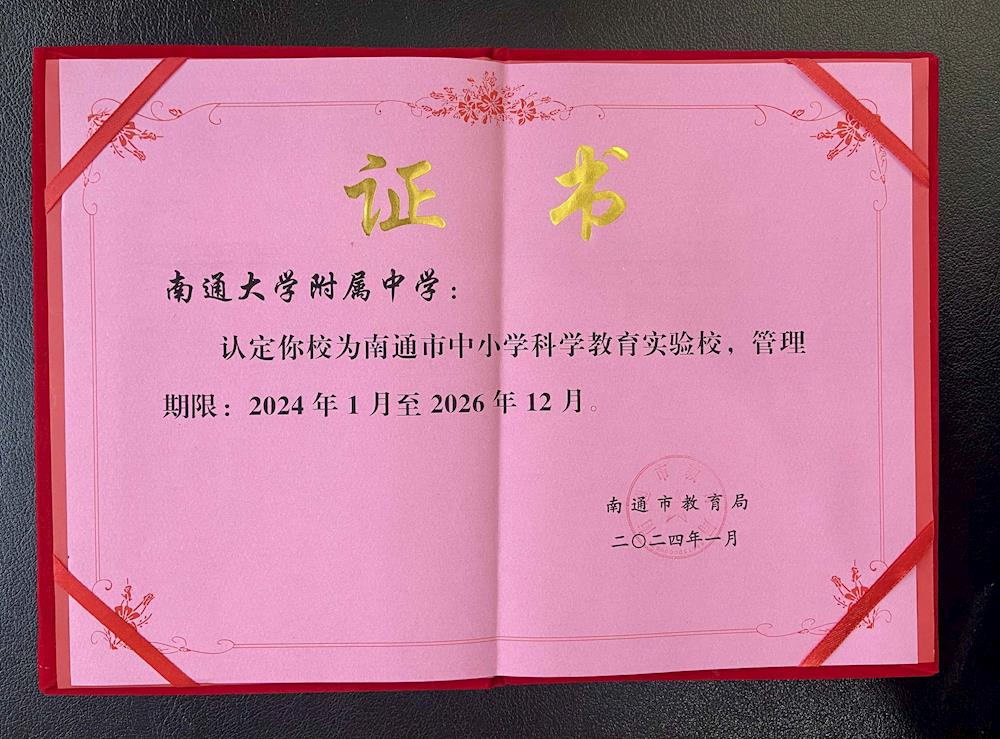 证书
南通大学附属中学：
认定你校为南通市中小学科学教育实验校，管理
期限：2024年1月至2026年12月。
南通市教育局
二〇二四年一月